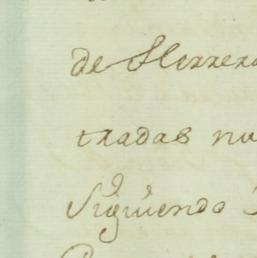 de Herrera
tradas nu
Siguiendo